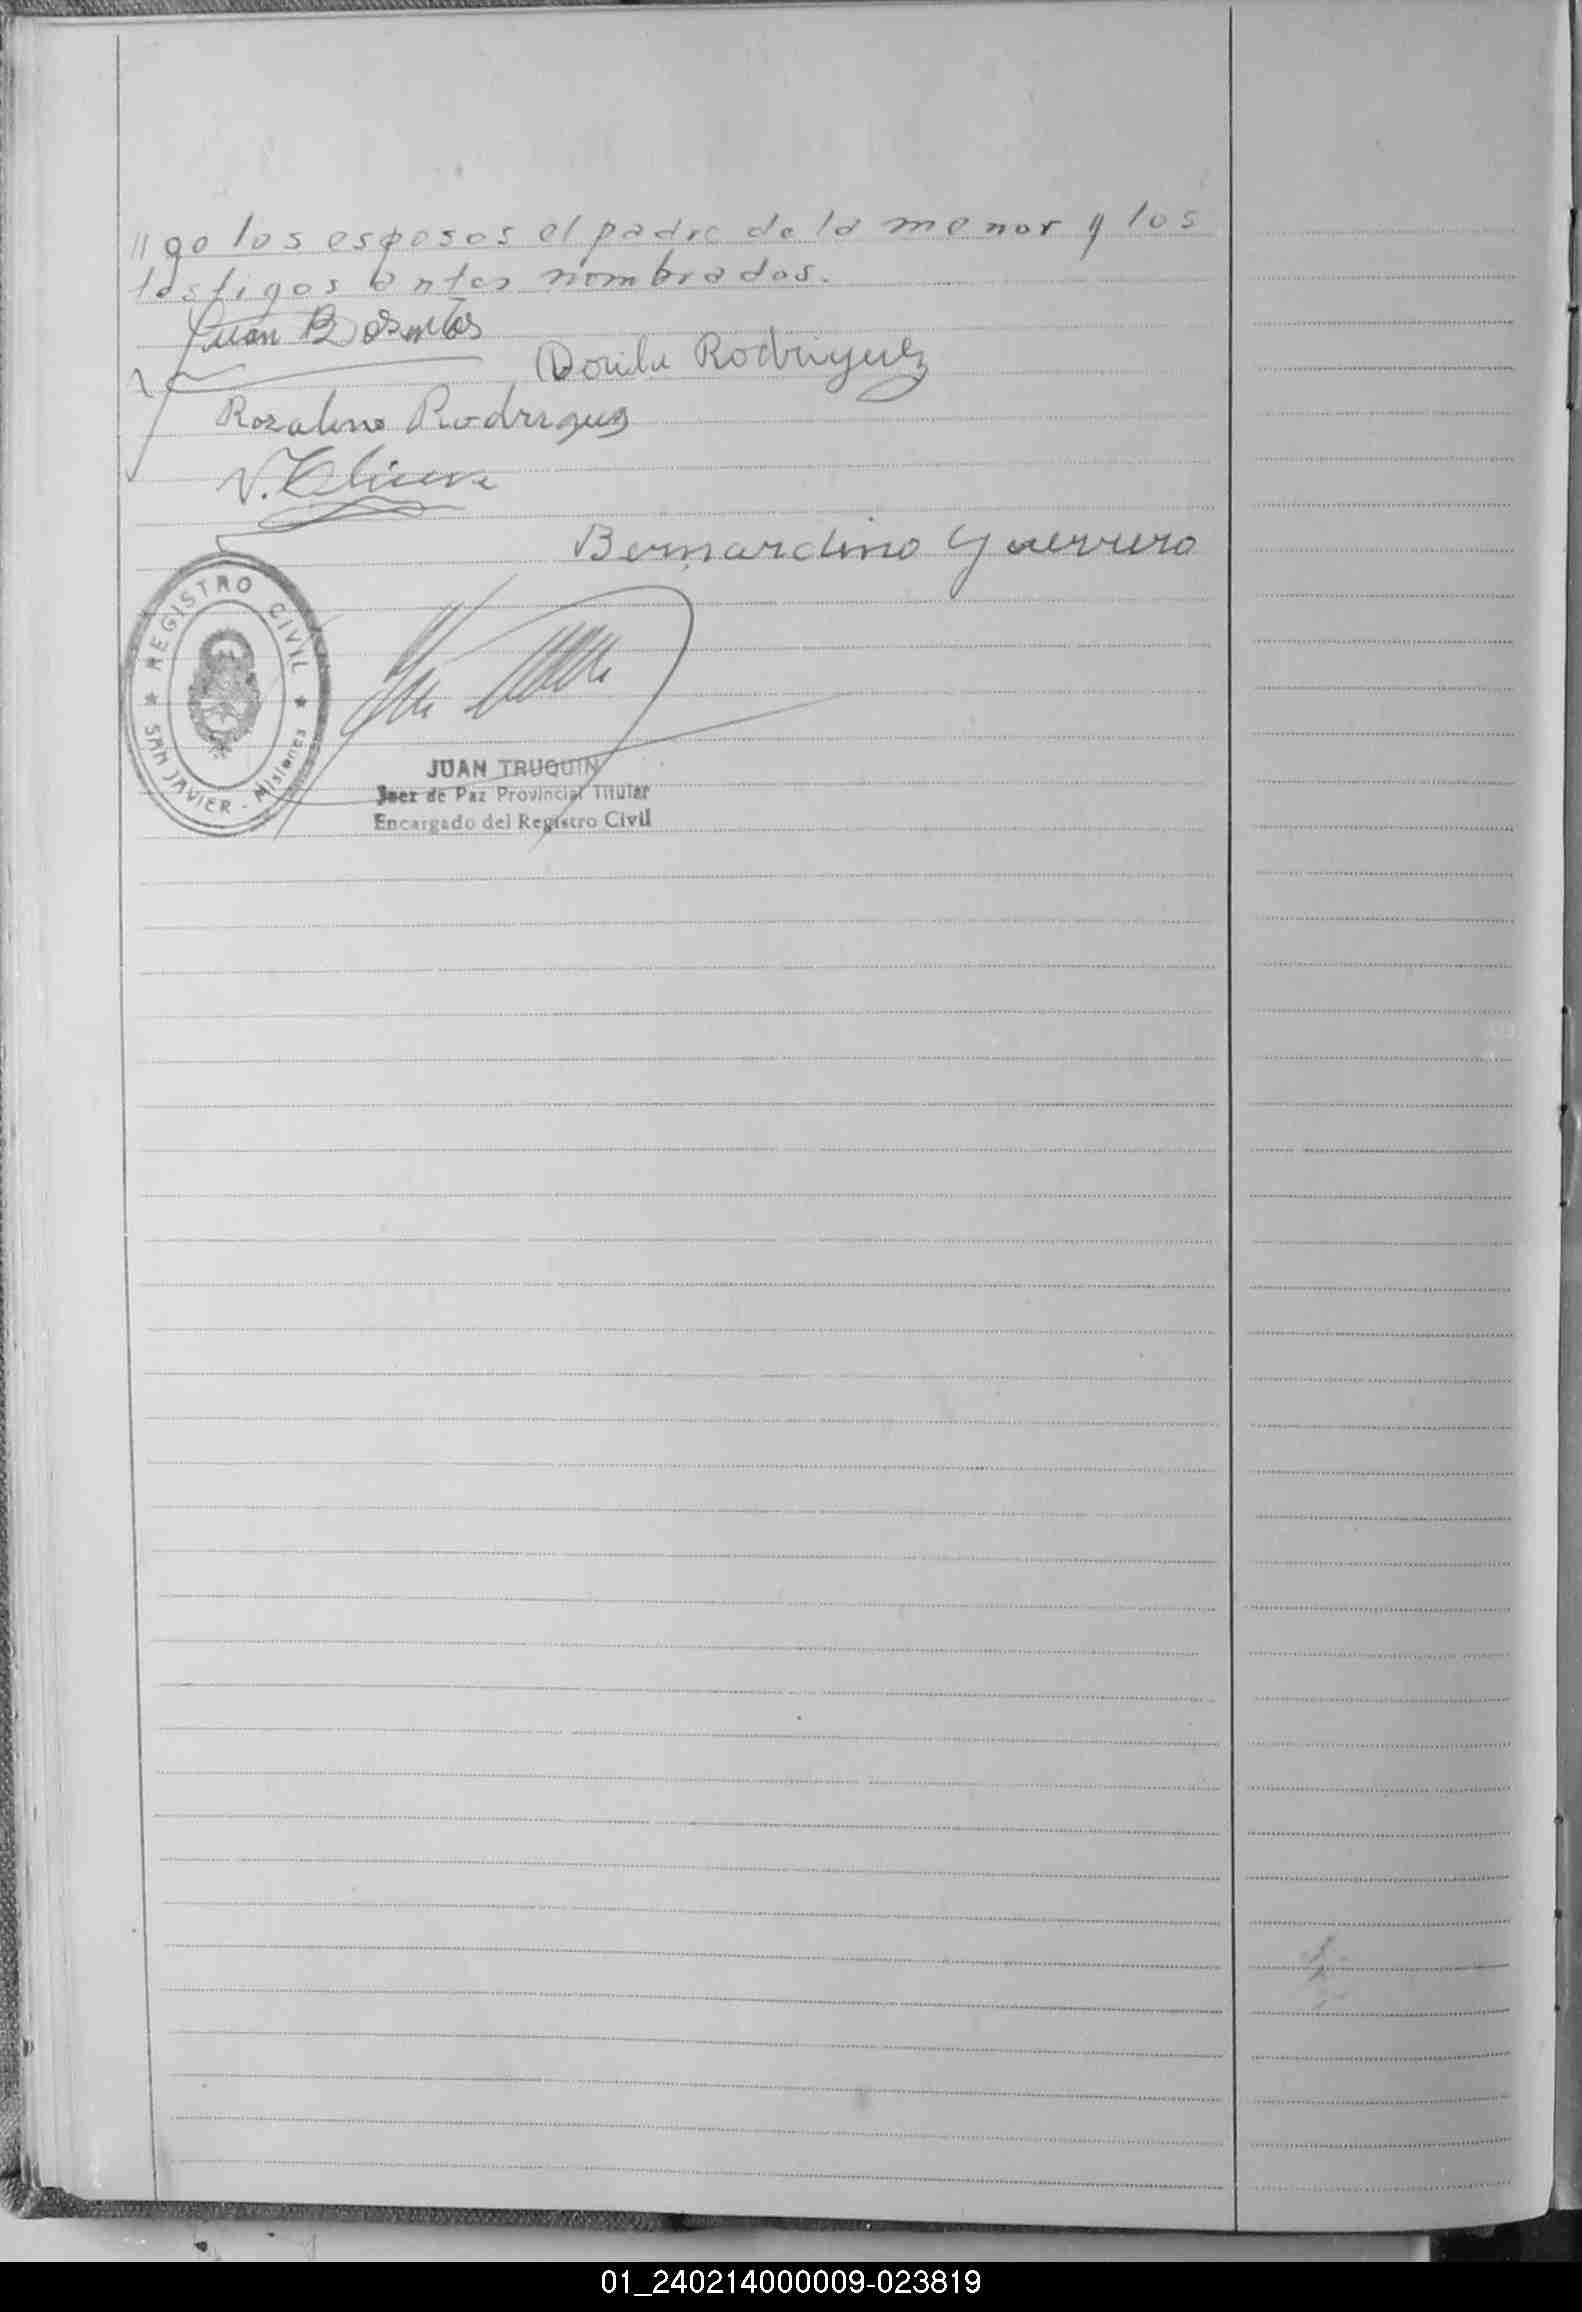 //go los esposos el padre de la menor y los
testigos antes nombrados.
Juan B Dos Santos
Dorila Rodriguez
Rozalino Rodriguez
N.
Bernardino Guerrero
REGISTRO CIVIL
SAN JAVIER - Misiones
JUAN TRUQUIN
Juez de Paz Provincial Titular
Encargado del Registro Civil
01_240214000009-023819